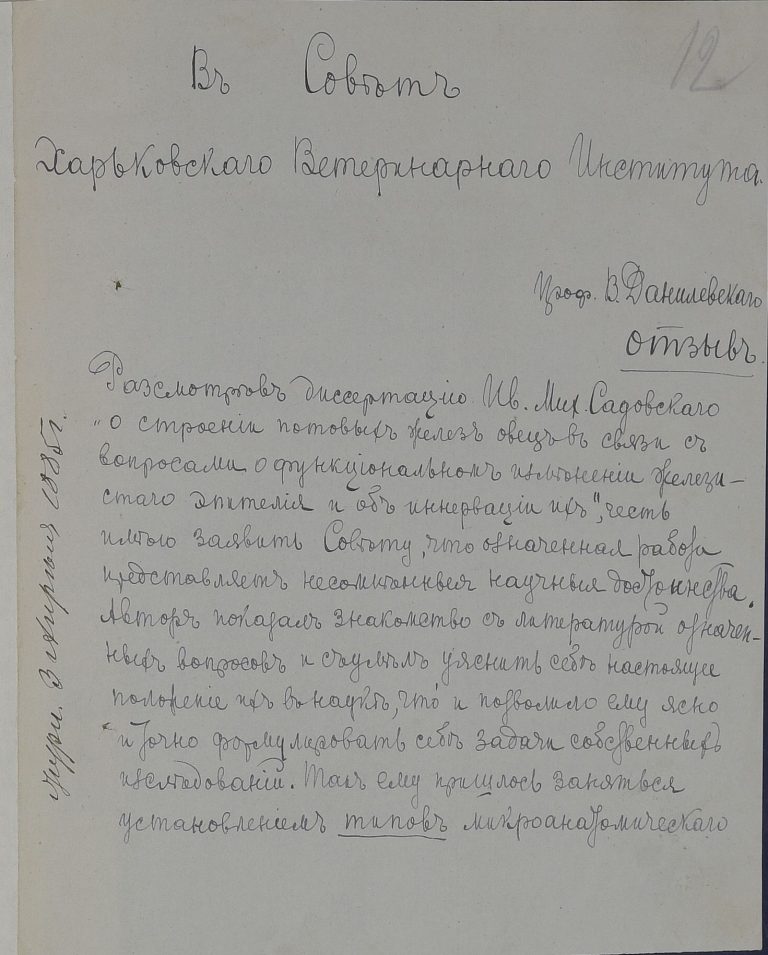 12
Въ Совѣтъ
Харьковскаго Ветеринарнаго Института.
Проф. В. Данилевскаго
Отзывъ.
Разсмотрѣвъ диссертацію Ив. Мих. Садовскаго
„о строеніи потовыхъ железъ овецъ въ связи съ
вопросами о функціональномъ измѣненіи желези-
стаго эпителія и объ иннерваціи ихъ“, честь
имѣю заявить Совѣту, что означенная работа
представляетъ несомнѣнныя научныя достоинства.
Авторъ показалъ знакомство съ литературой означен-
ныхъ вопросовъ и съумѣлъ уяснить себѣ настоящее
положеніе ихъ въ наукѣ, что и позволило ему ясно
и точно формулировать себѣ задачи собственныхъ
изслѣдованій. Такъ ему пришлось заняться
установленіемъ типовъ микроанатомическаго
Журн. 3 Апрѣля 1885 г.